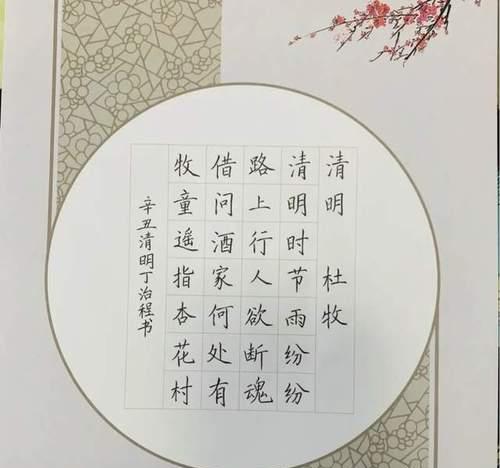 清明 杜牧
清明时节雨纷纷
路上行人欲断魂
借问酒家何处有
牧童遥指杏花村
辛丑清明丁治程书